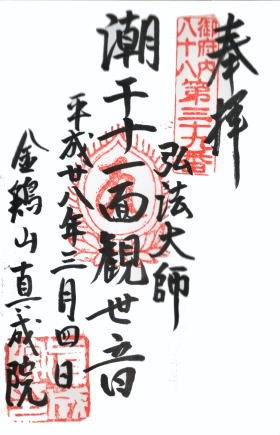 奉拝
御府内
八十八
第三十九番
弘法大師
潮干十一面観世音
平成廿八年三月四日
金鶏山真成院